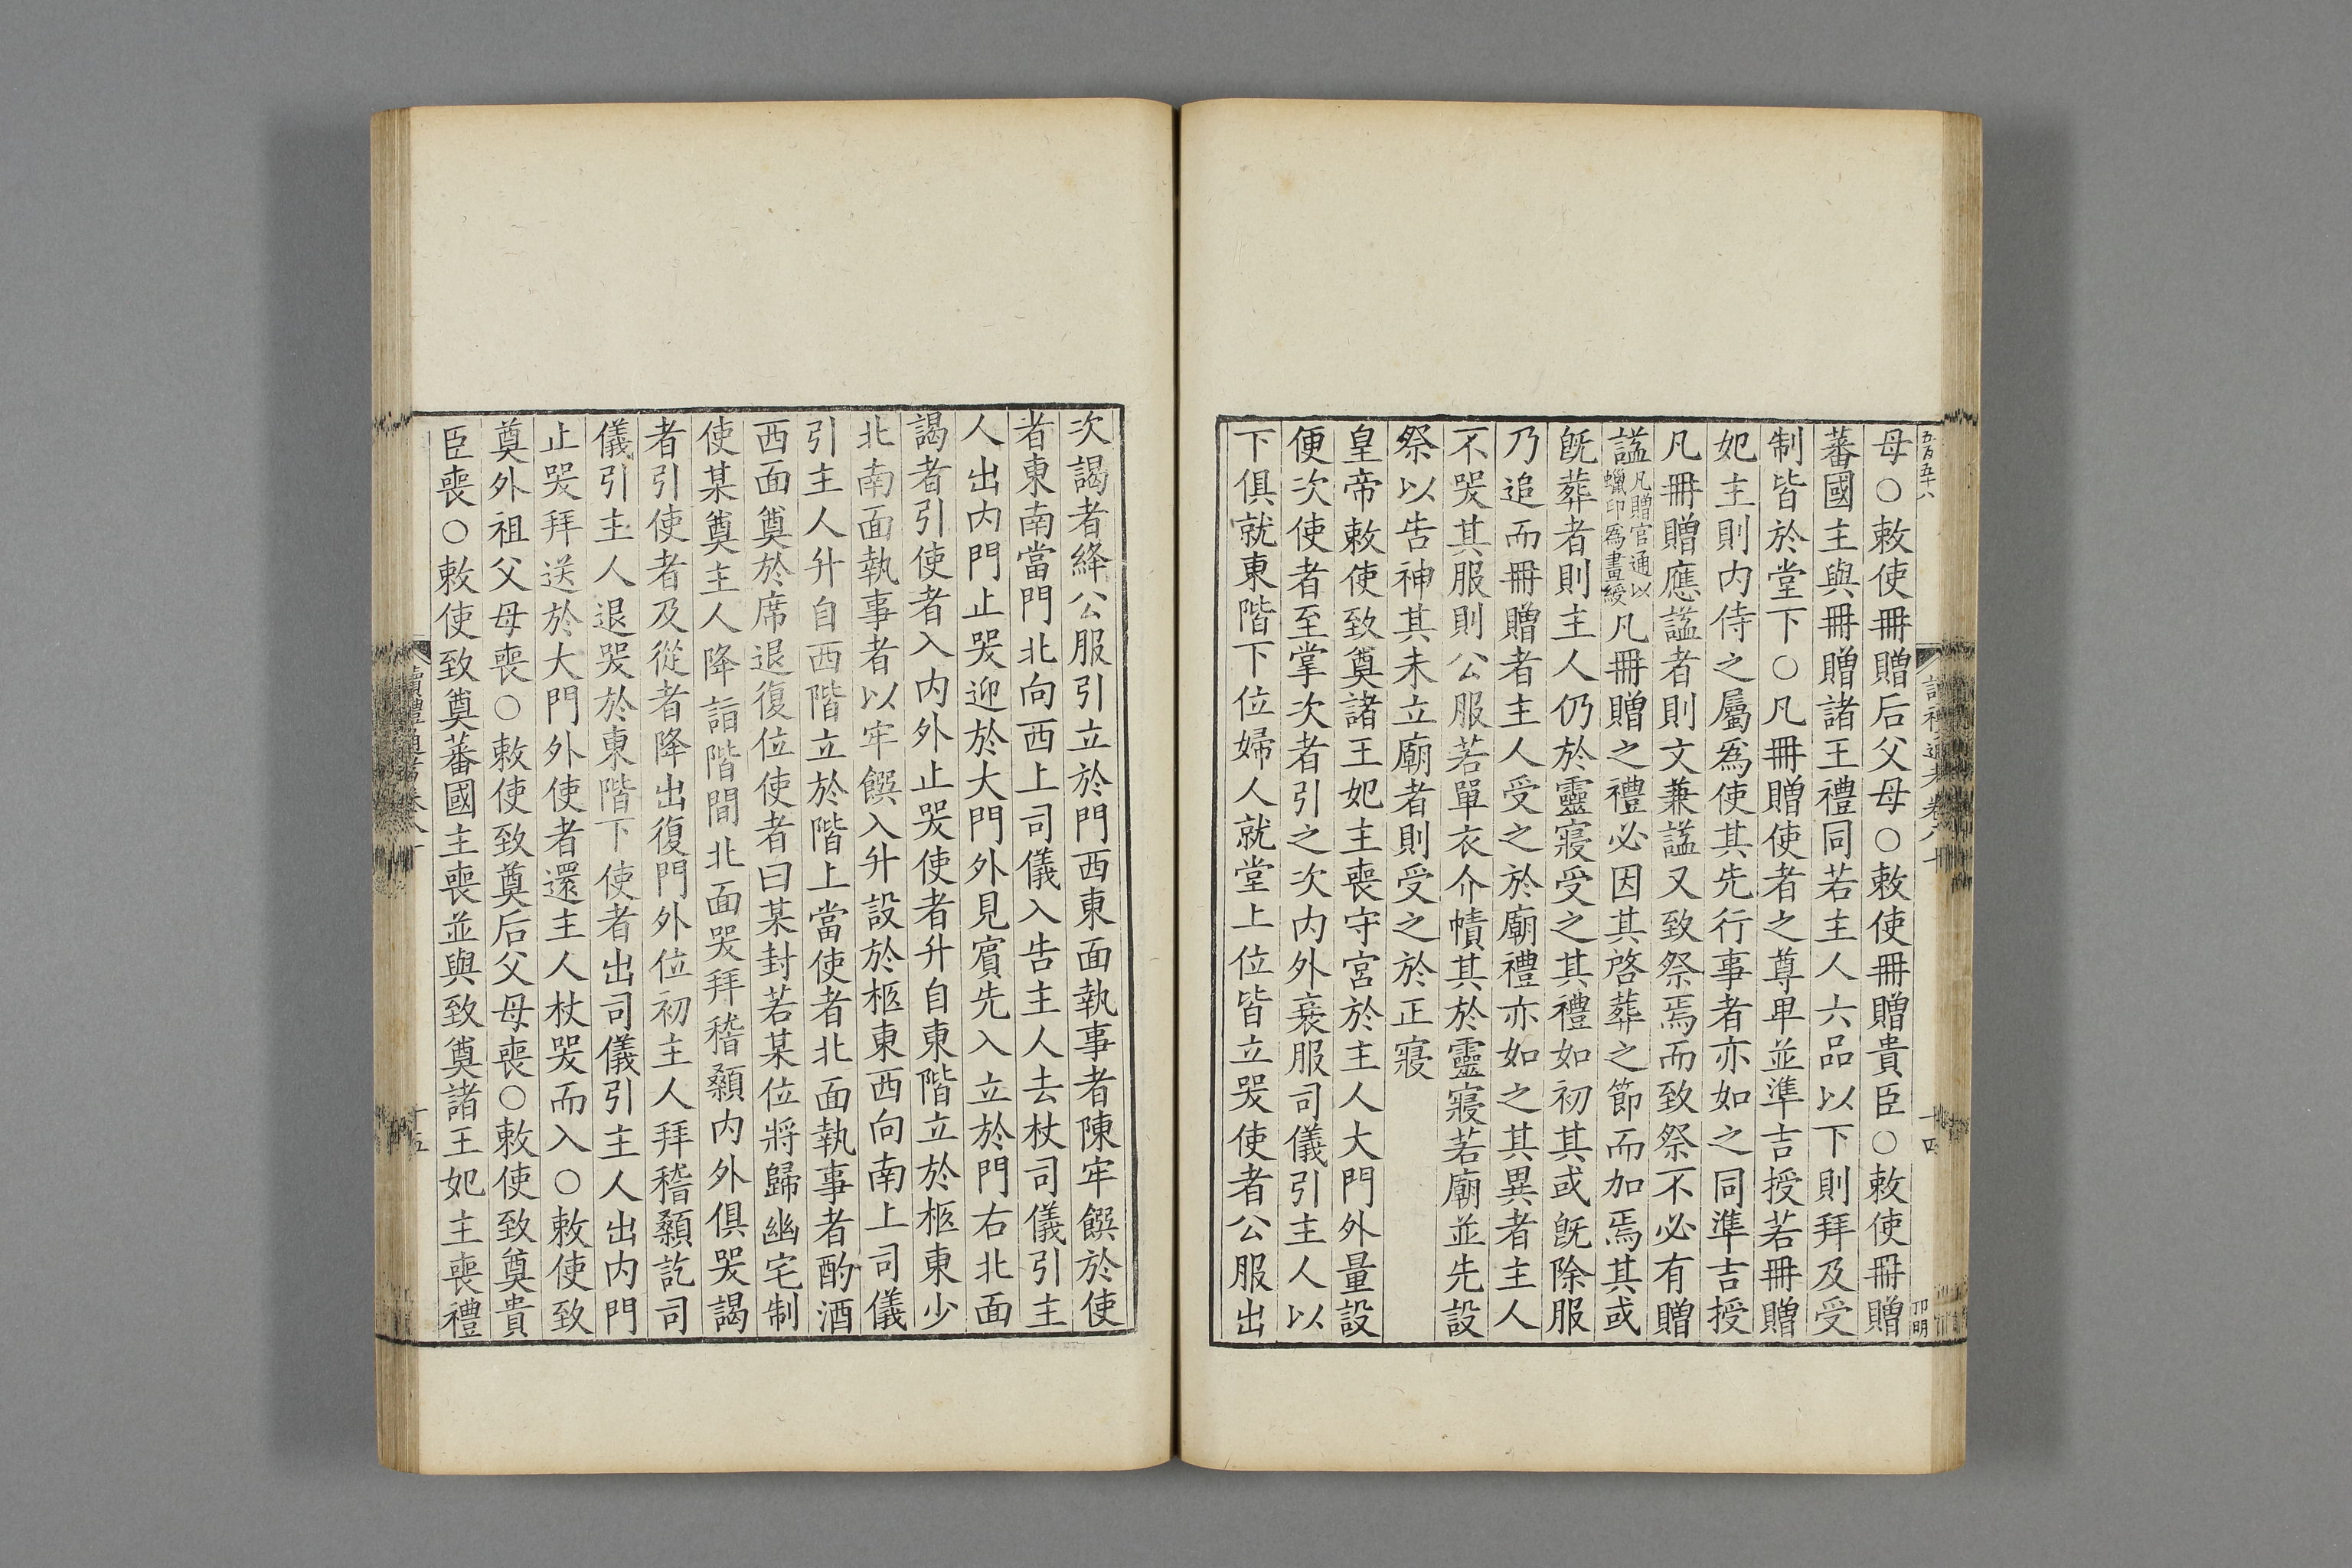 五百五十八
讀禮通考卷八十
十四
母○敕使冊贈后父母○敕使冊贈貴臣○敕使冊贈
蕃國主與冊贈諸王禮同若主人六品以下則拜及受
制皆於堂下○凡冊贈使者之尊卑並準吉授若冊贈
妃主則内侍之屬爲使其先行事者亦如之同準吉授
凡冊贈應諡者則文兼諡又致祭焉而致祭不必有贈
諡凡贈官通以蠟印爲畫綬凡冊贈之禮必因其啓葬之節而加焉其或
旣葬者則主人仍於靈寢受之其禮如初其或旣除服
乃追而冊贈者主人受之於廟禮亦如之其異者主人
不哭其服則公服若單衣介幘其於靈寢若廟並先設
祭以告神其未立廟者則受之於正寢
皇帝敕使致奠諸王妃主喪守宮於主人大門外量設
便次使者至掌次者引之次内外衰服司儀引主人以
下俱就東階下位婦人就堂上位皆立哭使者公服出
次謁者絳公服引立於門西東面執事者陳牢饌於使
者東南當門北向西上司儀入告主人去杖司儀引主
人出内門止哭迎於大門外見賓先入立於門右北面
謁者引使者入内外止哭使者升自東階立於柩東少
北南面執事者以牢饌入升設於柩東西向南上司儀
引主人升自西階立於階上當使者北面執事者酌酒
西面奠於席退復位使者曰某封若某位將歸幽宅制
使某奠主人降詣階間北面哭拜稽顙内外俱哭謁
者引使者及從者降出復門外位初主人拜稽顙訖司
儀引主人退哭於東階下使者出司儀引主人出内門
止哭拜送於大門外使者還主人杖哭而入○敕使致
奠外祖父母喪○敕使致奠后父母喪○敕使致奠貴
臣喪○敕使致奠蕃國主喪並與致奠諸王妃主喪禮
讀禮通考卷八十
十五